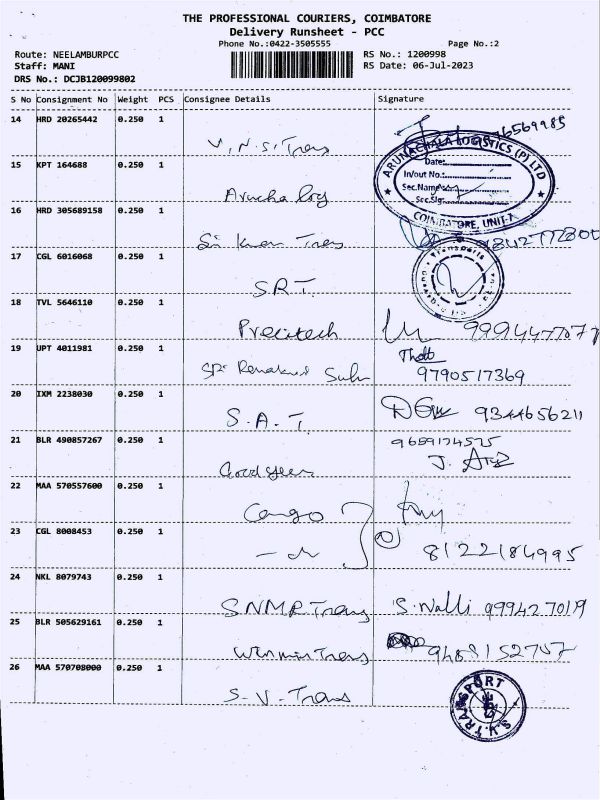 THE PROFESSIONAL COURIERS, COIMBATORE
Delivery Runsheet - PCC
Phone No.:0422-3505555
Page No.:2
Route: NEELAMBURPCC
RS No.: 1200998
Staff: MANI
RS Date: 06-Jul-2023
DRS No.: DCJB120099802
S No Consignment No Weight PCS Consignee Details Signature
14 HRD 20265442 0.250 1
V.N.S. Trans
15 KPT 164688 0.250 1
ARUNACHALA LOGISTICS (P) LTD
Date:
In/out No.:
Sec.Name
Sec.Sig:
COIMBATORE, UNIT-7
16 HRD 305689158 0.250 1
17 CGL 6016068 0.250 1
S.R.T.
18 TVL 5646110 0.250 1
Precitech 9994477077
19 UPT 4011981 0.250 1
9790517369
20 IXM 2238030 0.250 1
S.A.T. 9344656211
21 BLR 490857267 0.250 1
9659174575
Goodyear J.
22 MAA 570557600 0.250 1
Cango
23 CGL 8008453 0.250 1
8122184995
24 NKL 8079743 0.250 1
SNMR Trans S. Nalli 9994270119
25 BLR 505629161 0.250 1
Trans 9489152707
26 MAA 570708000 0.250 1
S.V. Trans
S.V. TRANSPORT